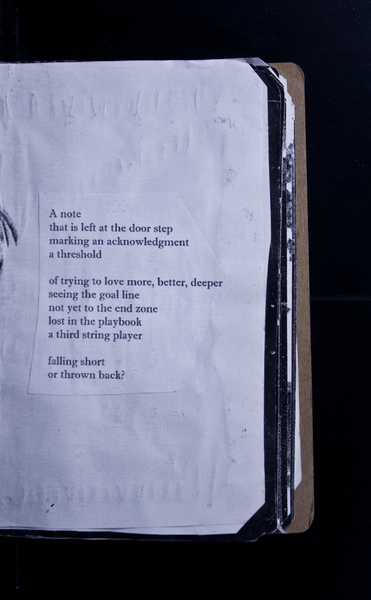 A note
that is left at the door step
marking an acknowledgment
a threshold

of trying to love more, better, deeper
seeing the goal line
not yet to the end zone
lost in the playbook
a third string player

falling short
or thrown back?